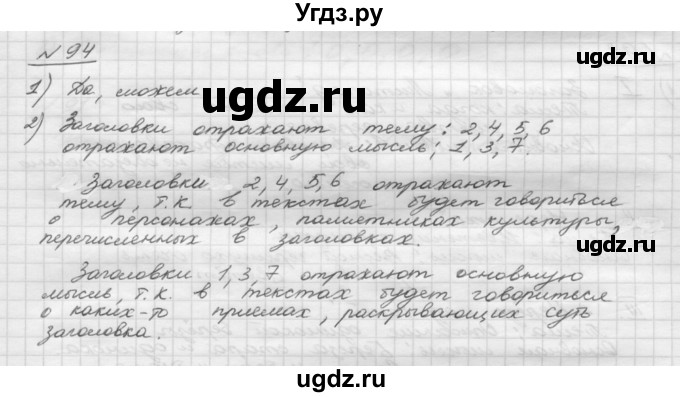 Угдз.ру
№ 94
1) Да, можем
ugdz.ru
2) Заголовки отражают тему: 2, 4, 5, 6
отражают основную мысль; 1, 3, 7.
Заголовки 2, 4, 5, 6 отражают
тему, т.к. в текстах будет говориться
о персонажах, памятниках культуры,
перечисленных в заголовках.
Заголовки 1, 3, 7 отражают основную
мысль, т.к. в текстах будет говориться
о каких-то приемах, раскрывающих суть
заголовка.
ugdz.ru
ugdz.ru